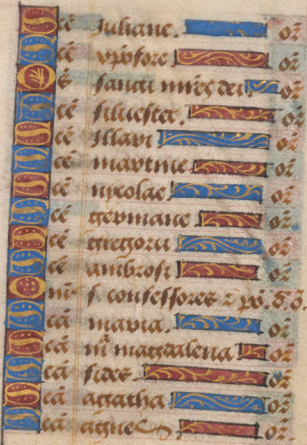 Scē Juliane. or̄
Scē xp̄ofore or̄
Oēs sancti mr̄es dei or̄
Scē siluester. or̄
Scē illari or̄
Scē martine or̄
Scē nycolae or̄
Scē germane or̄
Scē gregorii or̄
Scē ambrosi or̄
Om̄s s. confessores
Scā maria. or̄
Scā m̄ magdalena or̄
Scā fides or̄
Scā agatha or̄
Scā agnes or̄